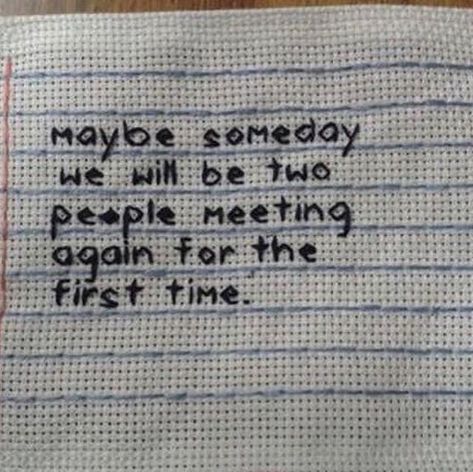 maybe someday
we will be two
people meeting
again for the
first time.